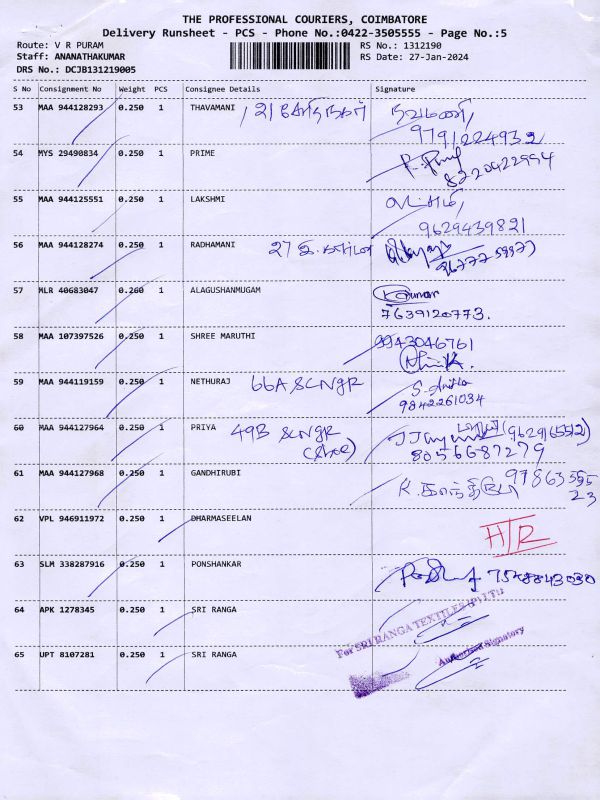 THE PROFESSIONAL COURIERS, COIMBATORE
Delivery Runsheet - PCS - Phone No.:0422-3505555 - Page No.:5
Route: V R PURAM RS No.: 1312190
Staff: ANANATHAKUMAR RS Date: 27-Jan-2024
DRS No.: DCJB131219005
S No Consignment No Weight PCS Consignee Details Signature
53 MAA 944128293 0.250 1 THAVAMANI
9791224932
54 MYS 29490834 0.250 1 PRIME
8220422994
55 MAA 944125551 0.250 1 LAKSHMI
9629439821
56 MAA 944128274 0.250 1 RADHAMANI 27
57 MLR 40683047 0.260 1 ALAGUSHANMUGAM Kumar
7639120773.
58 MAA 107397526 0.250 1 SHREE MARUTHI 9943046761
59 MAA 944119159 0.250 1 NETHURAJ 66A SCNGR S. Anitha
9842261034
60 MAA 944127964 0.250 1 PRIYA 49B SCNGR
8056687279
61 MAA 944127968 0.250 1 GANDHIRUBI
K. காந்திரூபி
23
62 VPL 946911972 0.250 1 DHARMASEELAN H/R
63 SLM 338287916 0.250 1 PONSHANKAR
64 APK 1278345 0.250 1 SRI RANGA
For SRI RANGA TEXTILES (P) LTD
65 UPT 8107281 0.250 1 SRI RANGA Authorised Signatory